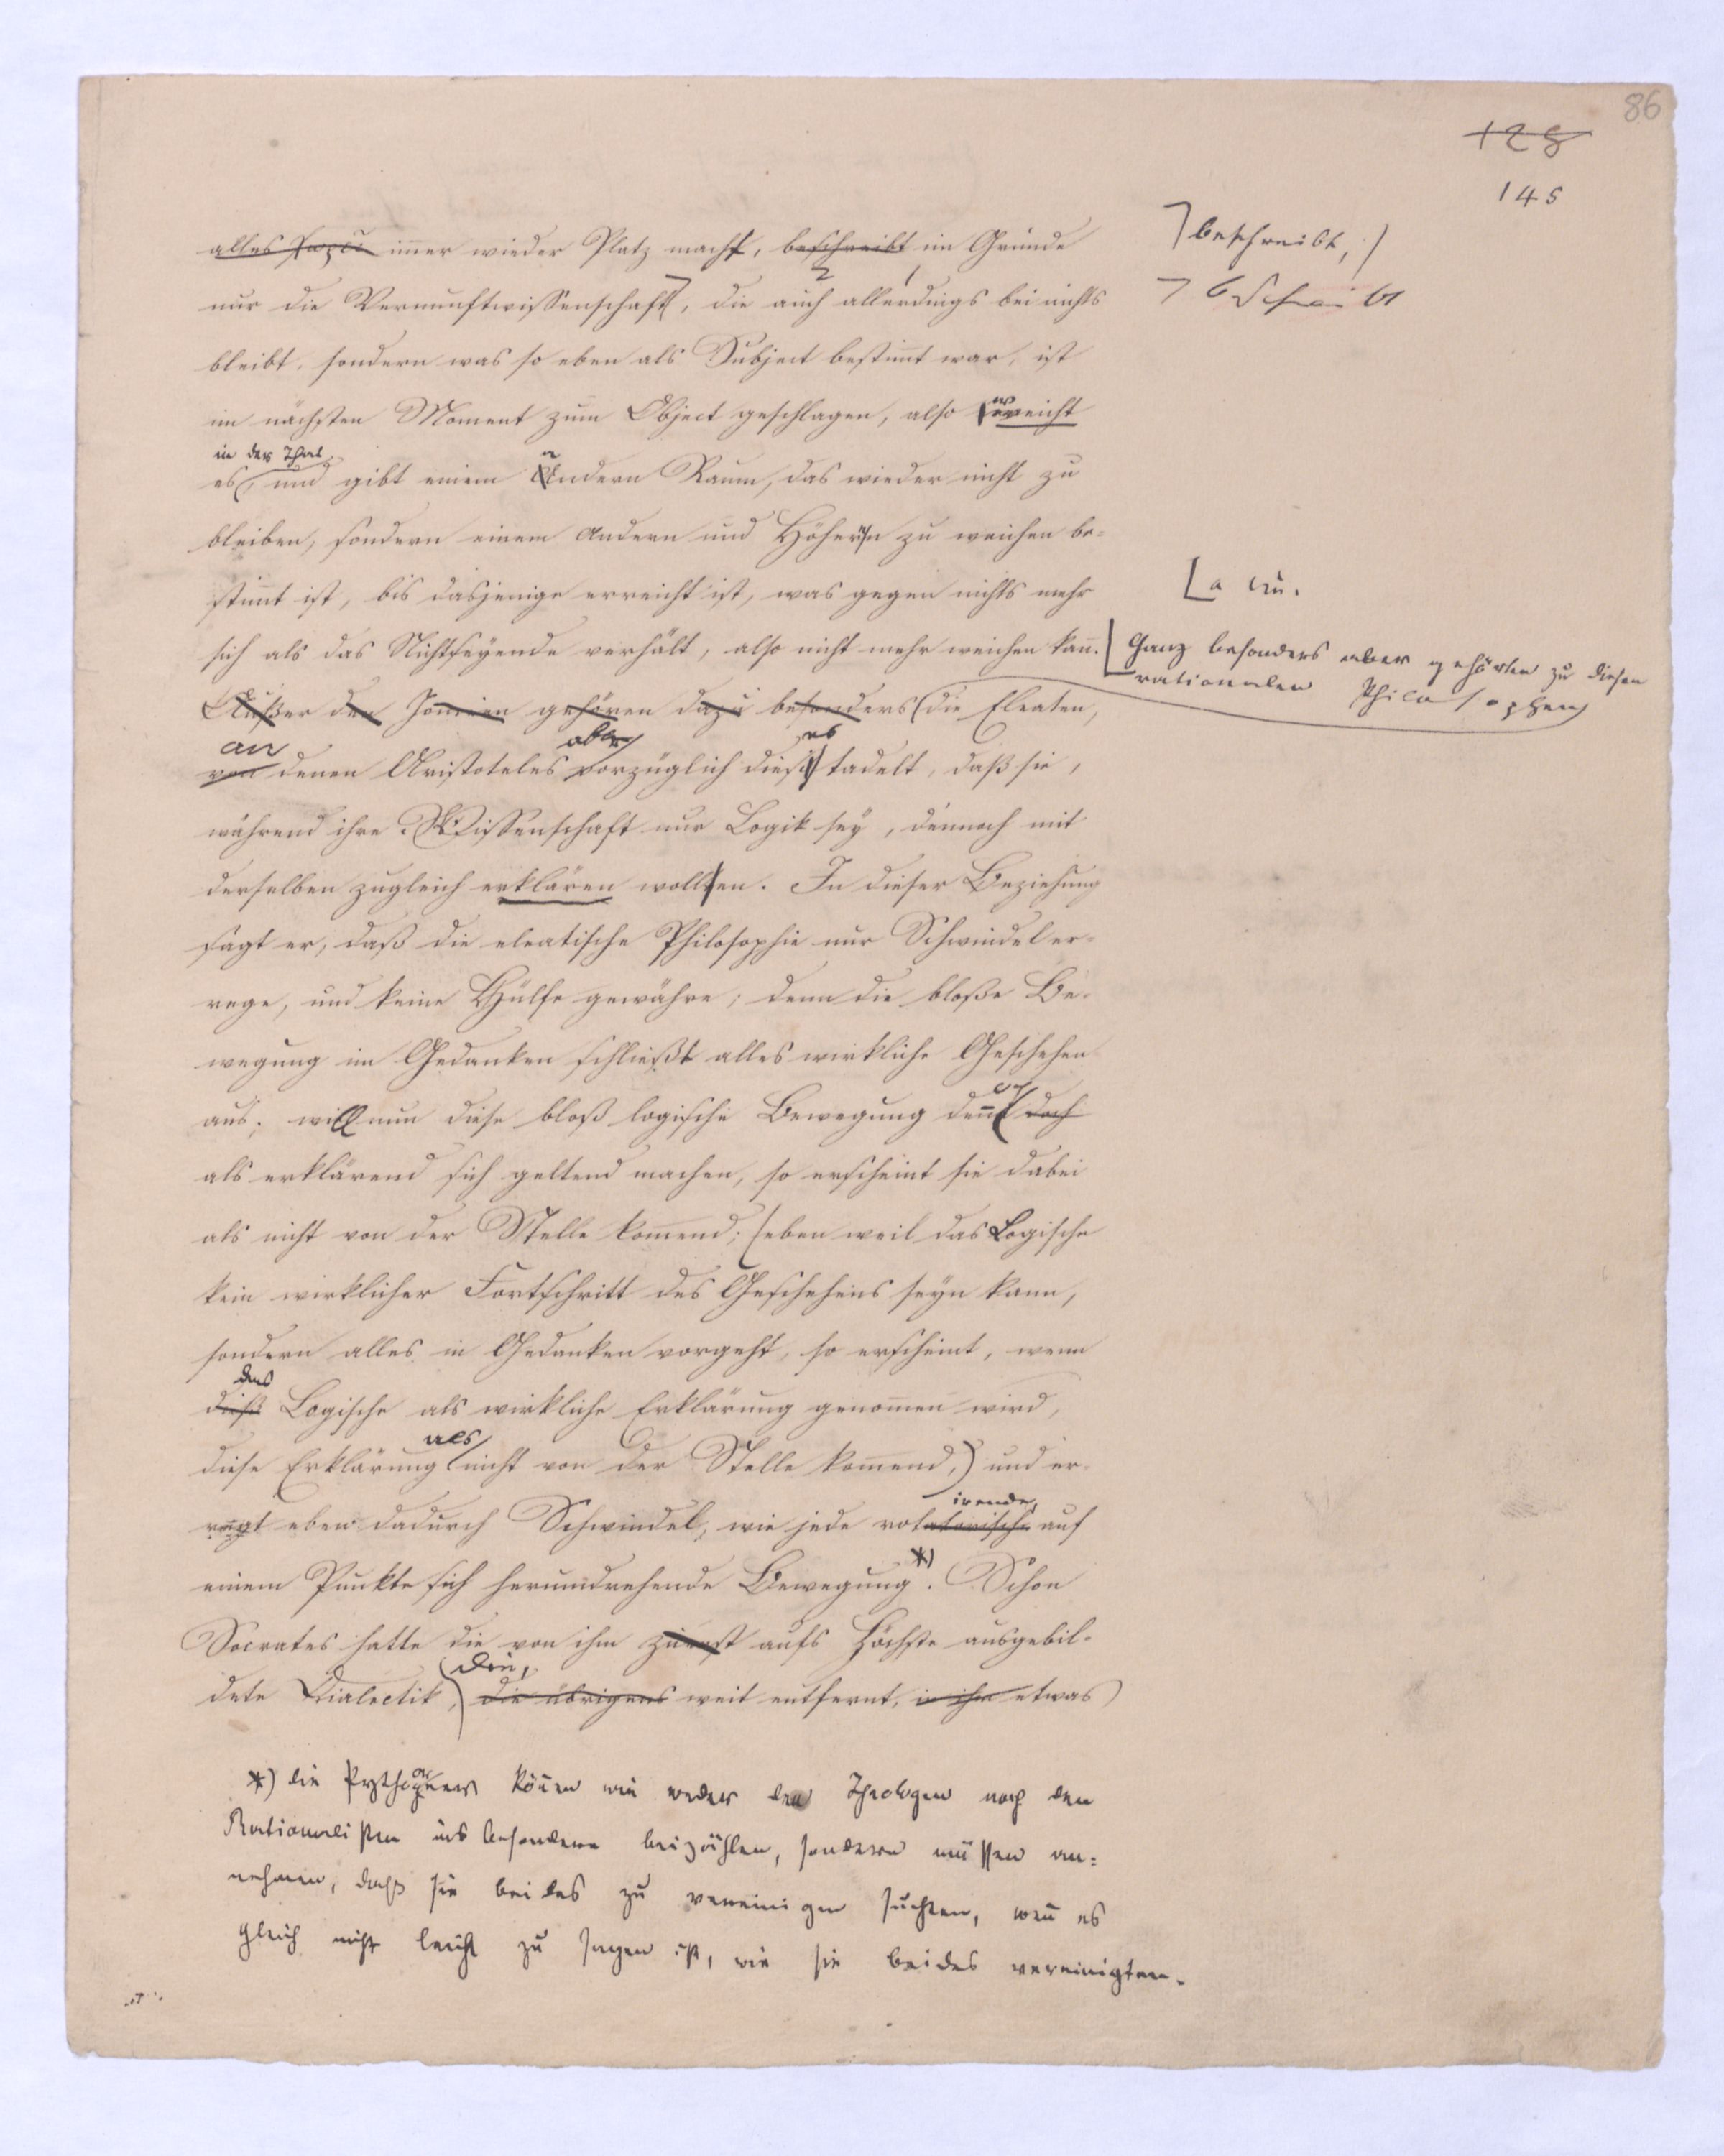 86
128
145
alles dazu im̄er wieder Platz macht, beschreibt im Grunde
⌉ beschreibt, /
nur die Vernunftwissenschaft, die auch allerdings bei nichts
2 1
⌉ beschreibt
bleibt, sondern was so eben als Subject bestim̄t war, ist
im nächsten Moment zum Object geschlagen, also weicht
in der That
es, und gibt einem Andern Raum, das wieder nicht zu
bleiben, sondern einem andern und Höhern zu weichen be-
stim̄t ist, bis dasjenige erreicht ist, was gegen nichts mehr
sich als das Nichtseyende verhält, also nicht mehr weichen kan̄.
Ganz besonders aber gehörten zu diesen
rationalen Philosophen
Außer den Joniern gehören dazu besonders die Eleaten,
an aber es
von denen Aristoteles vorzüglich dieß tadelt, daß sie,
während ihre Wissenschaft nur Logik sey, dennoch mit
derselben zugleich erklären wollten. In dieser Beziehung
sagt er, daß die eleatische Philosophie nur Schwindel er-
rege, und keine Hülfe gewähre; denn die bloße Be-
wegung im Gedanken schließt alles wirkliche Geschehen
aus; will nun diese bloß logische Bewegung doch
als erklärend sich geltend machen, so erscheint sie dabei
als nicht von der Stelle kom̄end; (eben weil das Logische
kein wirklicher Fortschritt des Geschehens seyn kann,
sondern alles in Gedanken vorgeht, so erscheint, wenn
das
dieß Logische als wirkliche Erklärung genom̄en wird,
als
diese Erklärung nicht von der Stelle kom̄end,) und er-
irende,
regt eben dadurch Schwindel, wie jede rotatorische auf
einem Punkte sich herumdrehende Bewegung *). Schon
Socrates hatte die von ihm zuerst aufs Höchste ausgebil-
die,
dete Dialectik, die übrigens weit entfernt, in ihr etwas
*) die Pythagoräer kön̄en wir weder den Theologen noch den
Rationalisten insbesondere beizählen, sondern müssen an-
nehmen, daß sie beides zu vereinigen suchten, wen̄ es
gleich nicht leicht zu sagen ist, wie sie beides vereinigten.